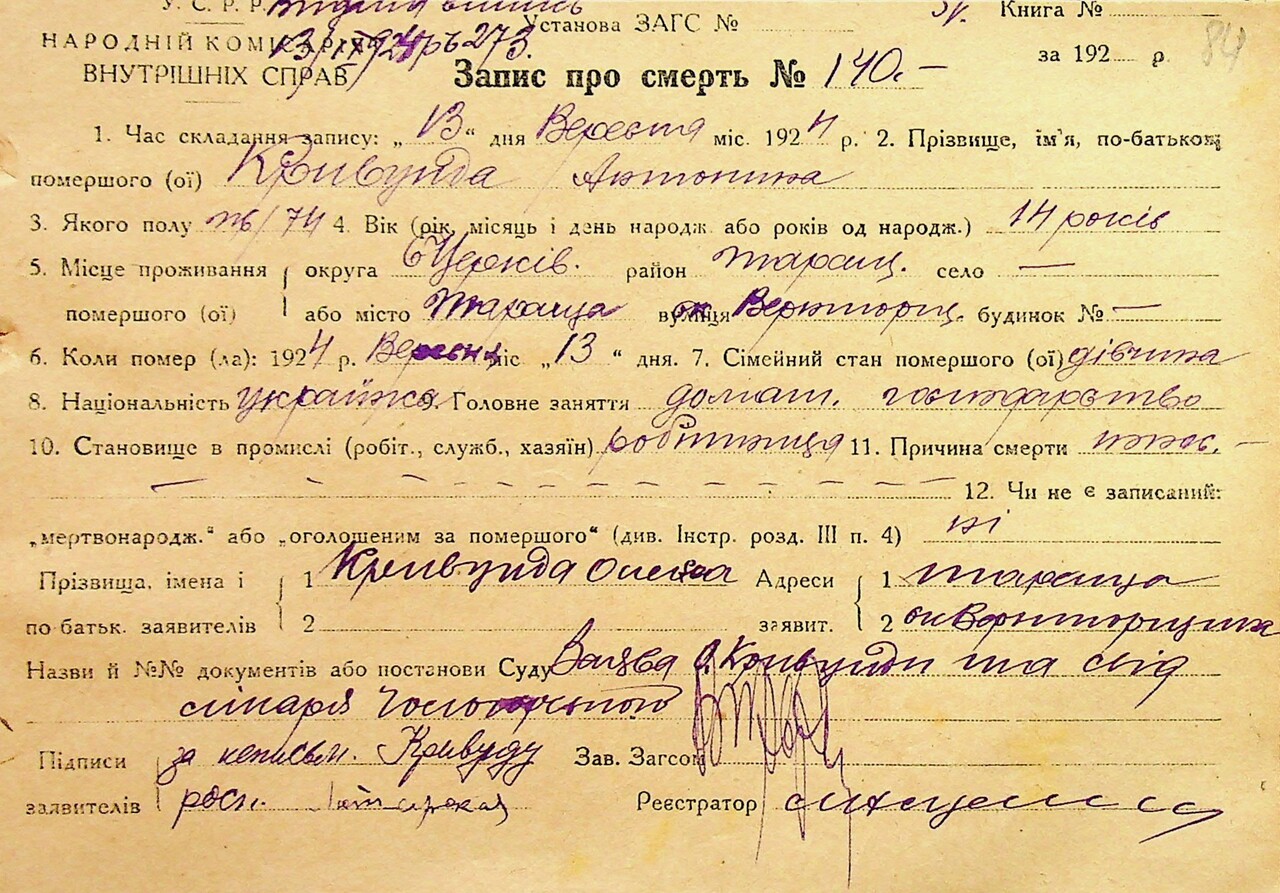 У. С. Р. Р. Установа ЗАГС № Книга №
НАРОДНІЙ КОМІСАРІЯТ 13/IX 1924 р ь 273. за 192 р. 84
ВНУТРІШНІХ СПРАВ Запис про смерть № 140.—
1. Час складання запису: „ 13 “ дня Вересня міс. 1924 р. 2. Прізвище, ім'я, по-батькові
помершого (ої) Кривунда Антонина
3. Якого полу ж/74 4. Вік (рік, місяць і день народж. або років од народж.) 14 років
5. Місце проживання округа БЦерків. район Таращ. село —
помершого (ої) або місто Тараща вулиця будинок № —
6. Коли помер (ла): 1924 р. Вересня міс „ 13 “ дня. 7. Сімейний стан помершого (ої) дівчина
8. Національність українка 9. Головне заняття домаш. господарство
10. Становище в промислі (робіт., служб., хазяїн) робітниця 11. Причина смерти —
— — — — — — — — — 12. Чи не є записаний:
„мертвонародж.“ або „оголошеним за помершого“ (див. Інстр. розд. III п. 4) ні
Прізвища, імена і 1 Кривунда Адреси 1 Тараща
по батьк. заявителів 2 заявит. 2
Назви й №№ документів або постанови Суду Заява О. Кривунди та від
лікаря
Підписи за неписьм. Кривуду Зав. Загсом
заявителів росп. Реєстратор